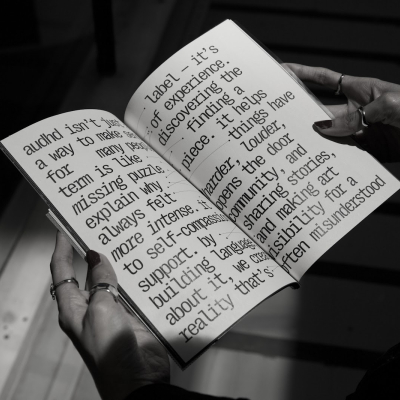 audhd isn't just
a way to make se
for many peop
term is like
missing puzzle
explain why
always felt
more intense it
to self-compassio
support. by
building languag
about it, we crea
reality that's
label — it's
of experience.
discovering the
finding a
piece. it helps
things have
harder, louder
opens the door
community, and
sharing stories,
and making art
isibility for a
often misunderstood